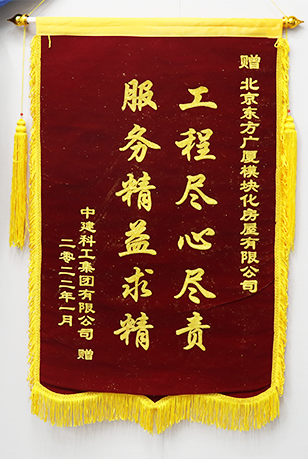 赠 北京东方广厦模块化房屋有限公司
工程尽心尽责
服务精益求精
中建科工集团有限公司 赠
二零二二年一月